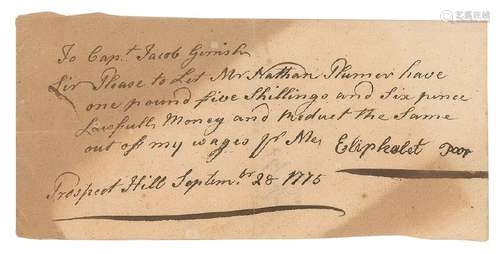 To Capt. Jacob Gerrish
Sir Please to Let Mr Nathan Plumer have
one pound five Shillings and Six pence
Lawfull Money and Deduct the Same
out off my wages pr Me
Eliphalet Poor
Prospect Hill Septembr 28 1775